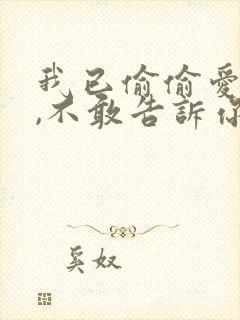 我已偷偷愛
,不敢告訴你
奚奴